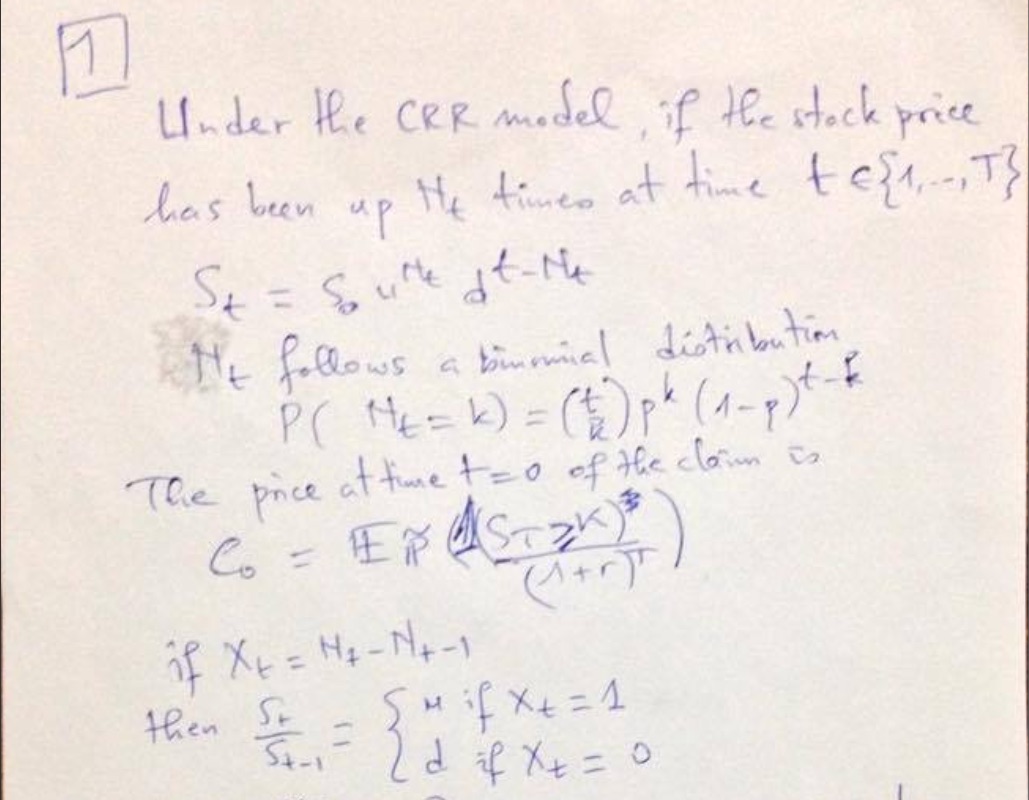 1
Under the CRR model, if the stock price
has been up N_t times at time t ∈ {1, .., T}
S_t = S_0 u^{N_t} d^{t-N_t}
N_t follows a binomial distribution
P( N_t = k) = (t k) p^k (1-p)^{t-k}
The price at time t=0 of the claim is
C_0 = E_{P̃} (1(S_T ≥ K) / (1+r)^T)
if X_t = N_t - N_{t-1}
then S_t / S_{t-1} = { u if X_t = 1
d if X_t = 0